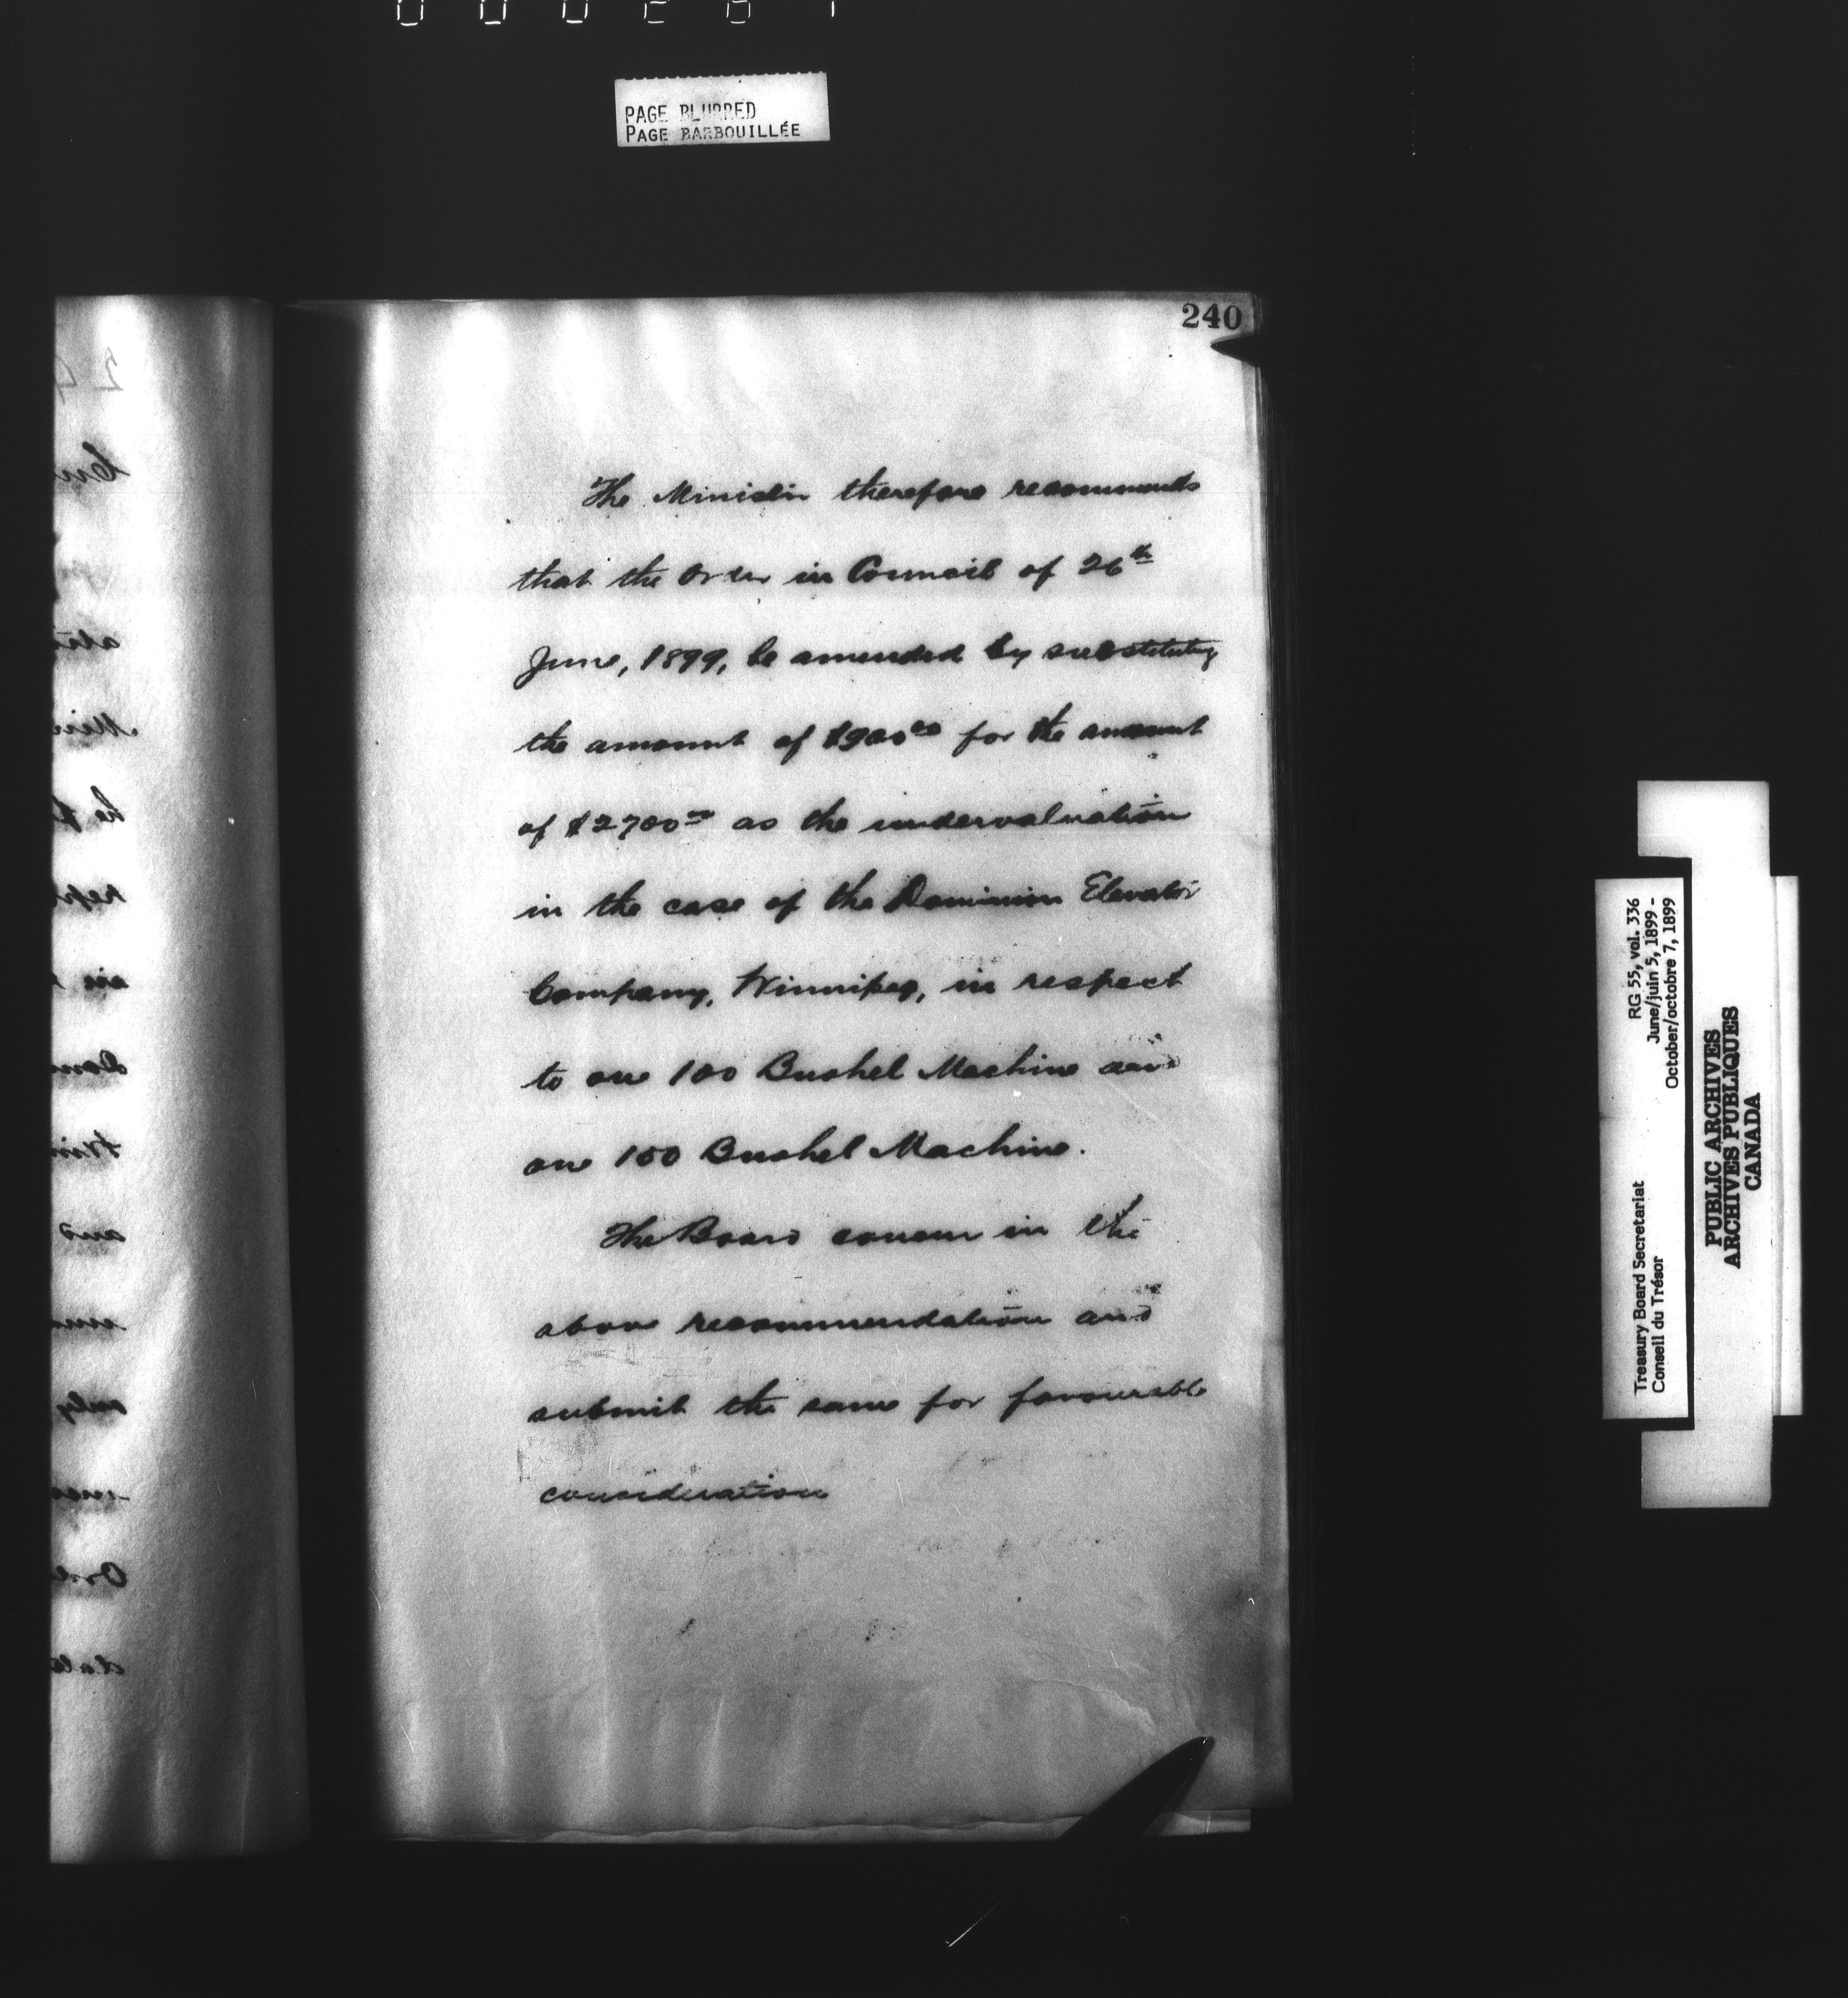 PAGE BLURRED
PAGE BARBOUILLÉE
240
The Minister therefore recommends
that the Order in Council of 26th
June, 1899, be amended by substituting
the amount of $900.00 for the amount
of $2700.00 as the undervaluation
in the case of the Dominion Elevator
Company, Winnipeg, in respect
to one 100 Bushel Machine and
one 150 Bushel Machine.
The Board concur in the
above recommendation and
submit the same for favourable
consideration
Treasury Board Secretariat RG 55, vol. 336
Conseil du Trésor June/juin 5, 1899 -
October/octobre 7, 1899
PUBLIC ARCHIVES
ARCHIVES PUBLIQUES
CANADA